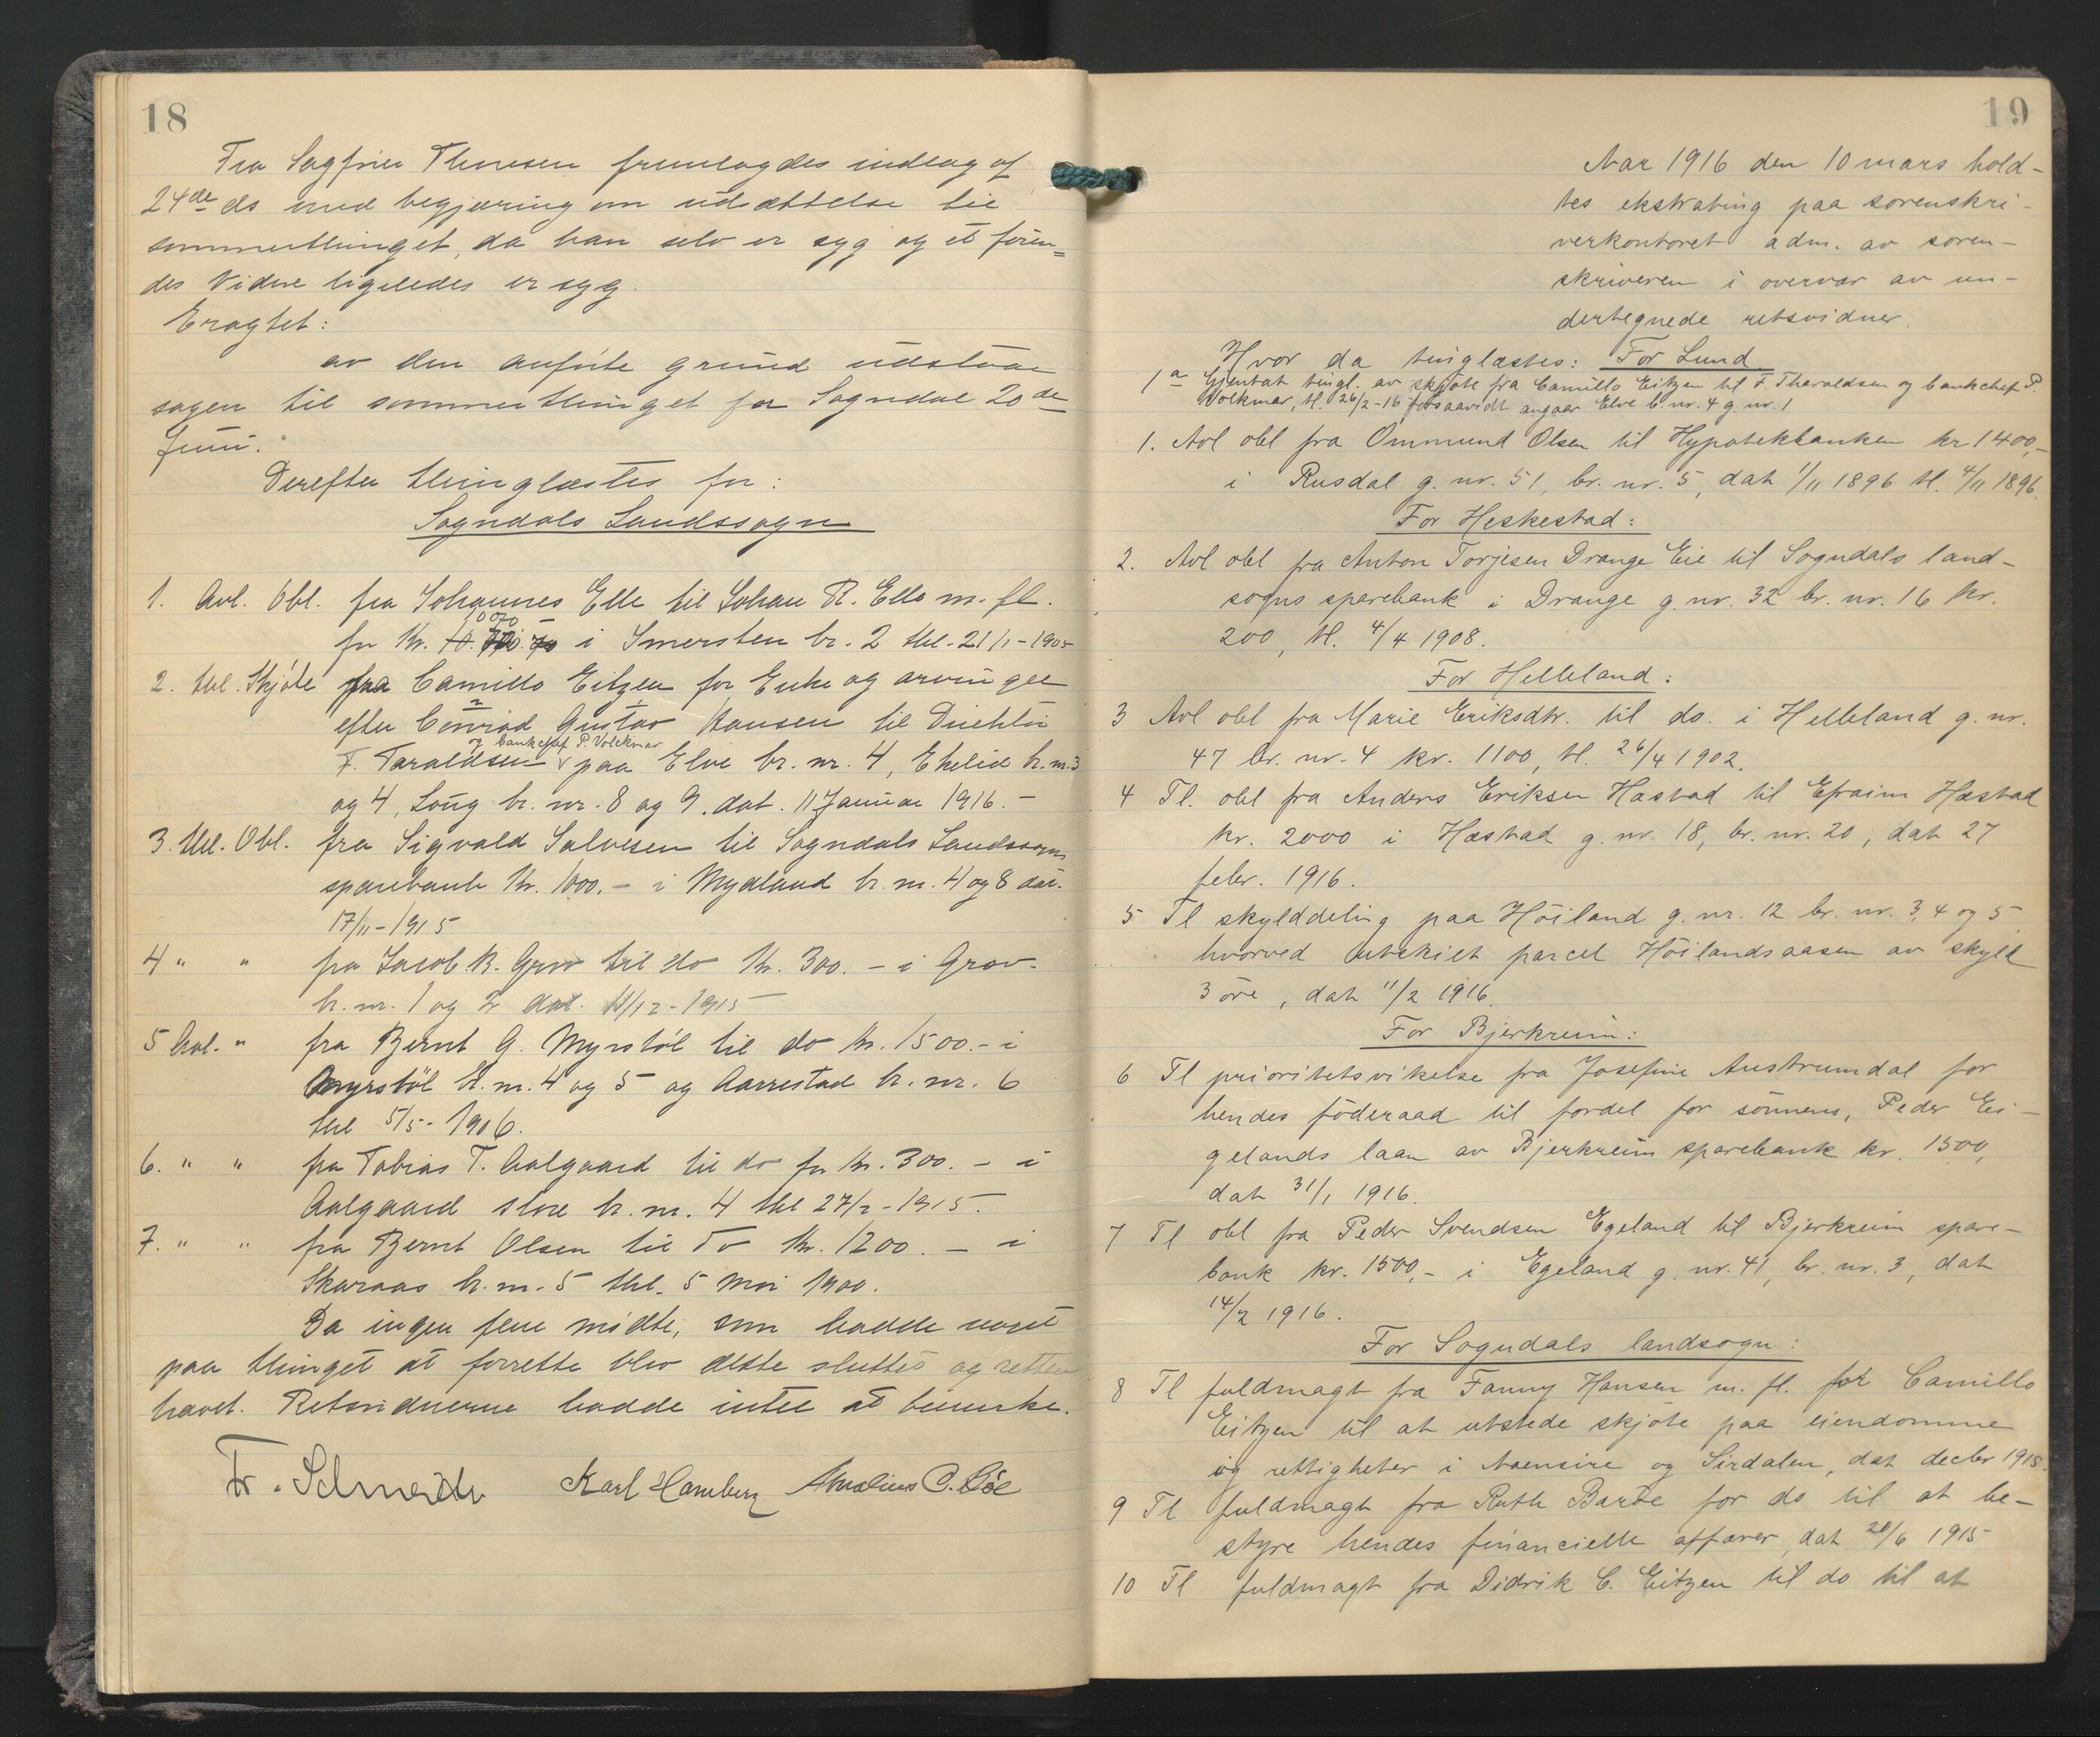 18
Fra Sagfører Thuesen fremlagdes indlæg af
24de ds med begjæring om udsættelse til
sommerthinget, da han selv er syg og et fören-
des Vidne ligeledes er syg.
Eragtet:
av den anførte grund udstaar
sagen til sommerthinget for Sogndal 20de
Juni.
Derefter thinglæstes for:
Sogndals Landssogn
1. Avl. Obl. fra Johannes Elle til Johan R. Elle m. fl.
for Kr. i Smersten br. 2 thl. 21/1-1905
2. thl. Skjöte fra Camillo Eitzen for Enke og arvinger
efter Conrad Gustav Hansen til Direktör
og bankchef P. Volckmar
F. Taraldsen paa Elve br. nr. 4, Ekelid br. nr. 3
og 4, Loug br. nr. 8 og 9. dat. 11 Januar 1916.-
3. thl. Obl. fra Sigvald Salvesen til Sogndals Landssogns
sparebank Kr. 1000.- i Mydland br. nr. 4 og 8 dat.
17/11-1915
4 " " fra Jacob K. Grov til do Kr. 300.- i Grov
br. nr. 1 og 2 dat. 11/12-1915
5 Avl. " fra Bernt G. Myrstöl til do Kr. 1500.- i
Myrstöl br. nr. 4 og 5 og Aarrestad br. nr. 6
thl 5/5-1906.
6. " " fra Tobias T. Aalgaard til do for Kr. 300.- i
Aalgaard store br. nr. 4 thl 27/2-1915.
7. " " fra Bernt Olsen til do Kr. 1200.- i
Skaraas br. nr. 5 thl. 5 Mai 1900.
Da ingen flere mödte, som hadde noget
paa thinget at forrette blev dette sluttet og retten
hævet. Retsvidnerne hadde intet at bemerke.
Fr. Schneider Karl Hamberg C. Böe
19
Aar 1916 den 10 mars hold-
tes ekstrating paa sorenskri-
verkontoret adm. av soren-
skriveren i overvær av un-
dertegnede retsvidner.
Hvor da tinglæstes: For Lund
1a Gjentat tingl. av skjøte fra Camillo Eitzen til F. Tharaldsen og bankchef P.
Volkmar, tl. 26/2-16 forsaavidt angaar Elve b. nr. 4 g. nr. 1
1. Avl obl fra Ommund Olsen til Hypotekbanken kr 1400,-
i Rusdal g. nr. 51, br. nr. 5, dat 1/11 1896 tl. 4/11 1896.
For Heskestad:
2. Avl obl fra Anton Torjesen Drange Eie til Sogndals land-
sogns sparebank i Drange g. nr. 32 br. nr. 16 kr.
200, tl. 4/4 1908.
For Helleland:
3 Avl obl fra Marie Eriksdtr. til do. i Helleland g. nr.
47 br. nr. 4 kr. 1100, tl. 26/4 1902.
4 Tl. obl fra Anders Eriksen Hæstad til Efraim Hæstad
kr. 2000 i Hæstad g. nr. 18, br. nr. 20, dat 27
febr. 1916.
5 Tl skylddeling paa Höiland g. nr. 12 br. nr. 3, 4 og 5
hvorved utskilt parcel Höilandsaasen av skyld
3 öre, dat 11/2 1916.
For Bjerkreim:
6 Tl prioritetsvikelse fra Josefine Austrumdal for
hendes föderaad til fordel for sönnens, Peder Ei-
gelands laan av Bjerkreim sparebank kr. 1500,
dat 31/1 1916.
7 Tl obl fra Peder Svendsen Egeland til Bjerkreim spare-
bank kr. 1500,- i Egeland g. nr. 41, br. nr. 3, dat
14/2 1916.
For Sogndals landsogn:
8 Tl fuldmagt fra Fanny Hansen m. fl. for Camillo
Eitzen til at utstede skjöte paa eiendomme
og rettigheter i Aaensire og Sirdalen, dat decbr 1915.
9 Tl fuldmagt fra Ruth Barde for do til at be-
styre hendes financielle affærer, dat 28/6 1915
10 Tl fuldmagt fra Didrik C. Eitzen til do til at